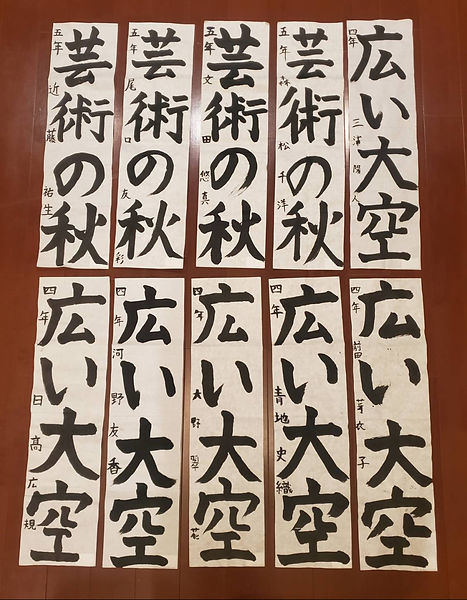 広い大空
四年 三浦陽人
芸術の秋
五年 森松千洋
芸術の秋
五年 文田悠真
芸術の秋
五年 尾口友彩
芸術の秋
五年 近藤祐生
広い大空
四年 前田芽衣子
広い大空
四年 青地史織
広い大空
四年 大野翠
広い大空
四年 河野友香
広い大空
四年 日高広規